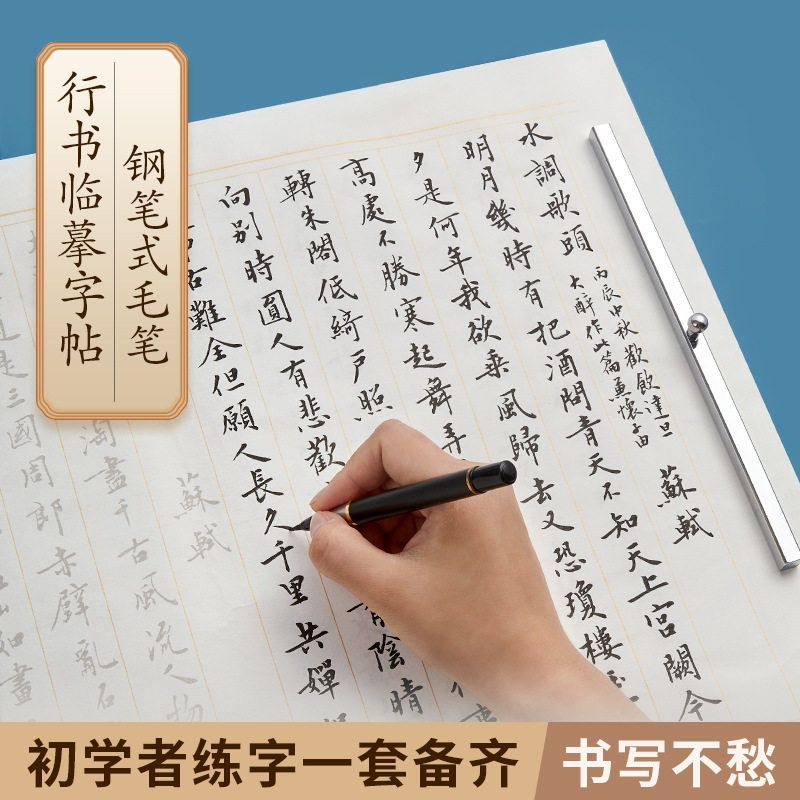 钢笔式毛笔
行书临摹字帖
水調歌頭
丙辰中秋歡飲達旦
大醉作此篇兼懷子由
蘇軾
明月幾時有把酒問青天不知天上宮闕今
夕是何年我欲乘風歸去又恐瓊樓
高處不勝寒起舞弄
轉朱閣低綺戶照
向別時圓人有悲歡
陰晴
古難全但願人長久千里共嬋
蘇軾
淘盡千古風流人物
是三國周郎赤壁亂石
如畫
初学者练字一套备齐
书写不愁